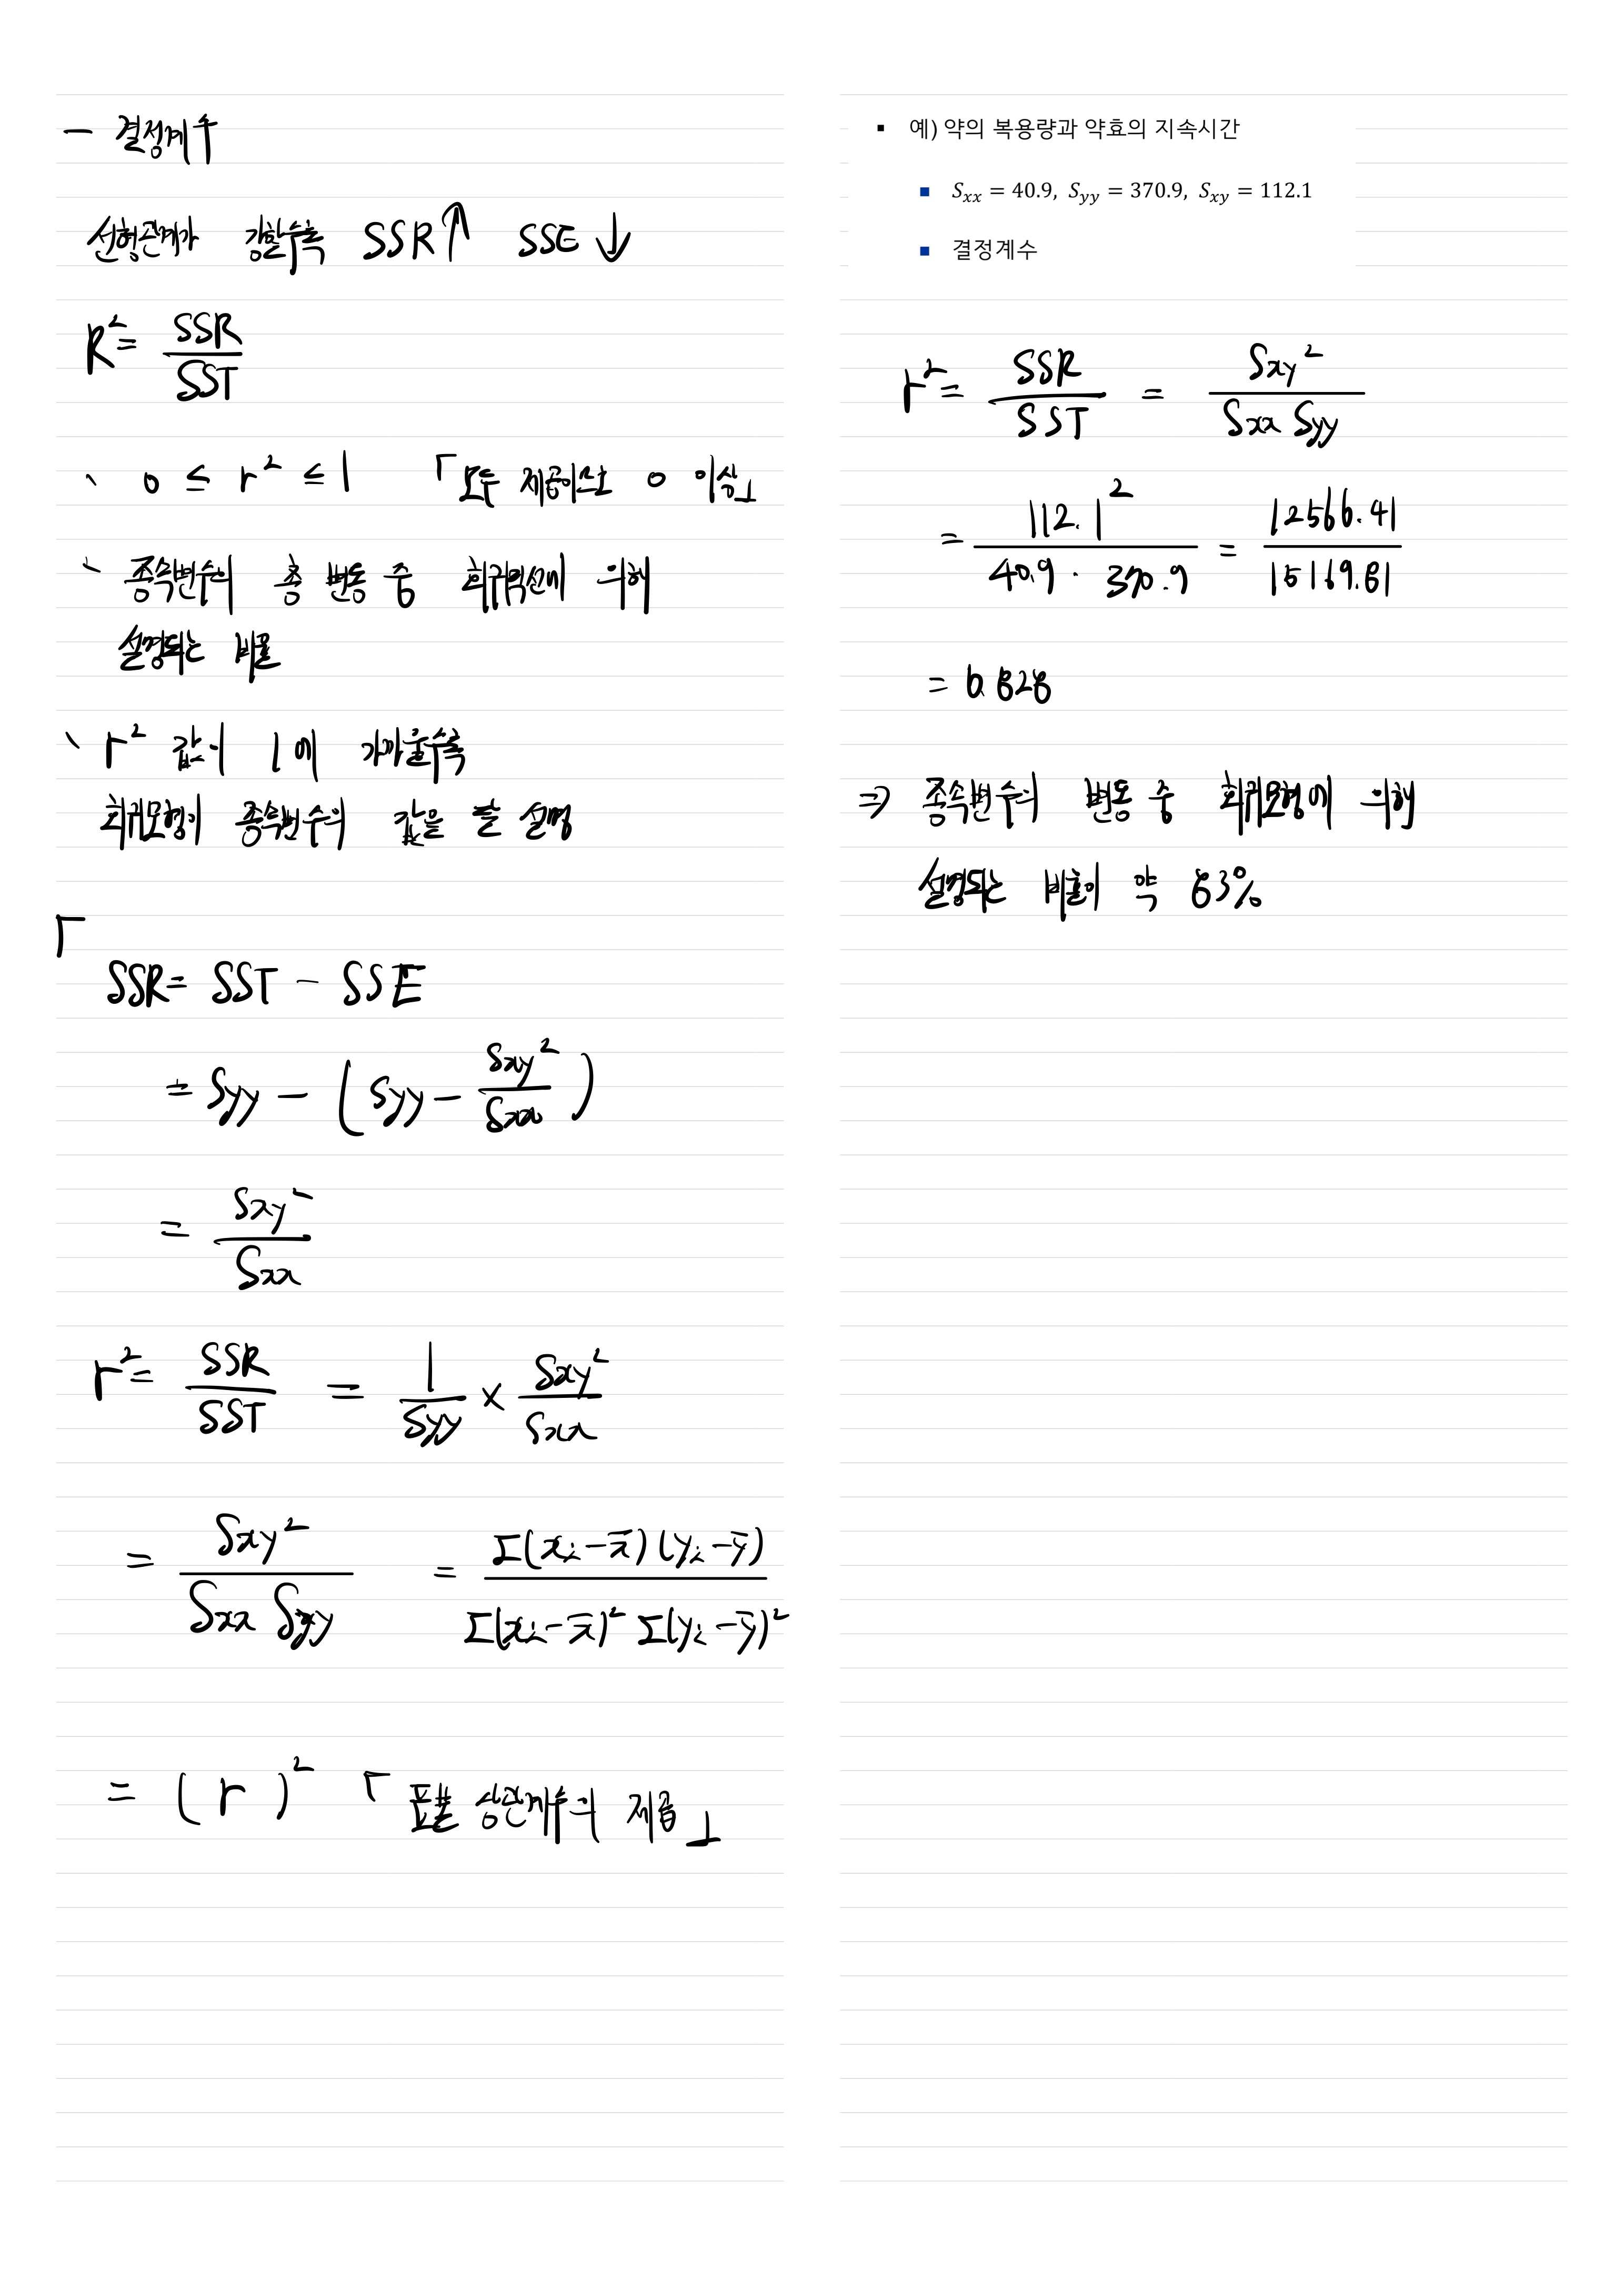 - 결정계수
선형관계가 강할수록 SSR↑ SSE↓
R² = SSR / SST
、 0 ≤ r² ≤ 1 「모두 제곱이므로 0 이상」
、 종속변수의 총 변동 중 회귀직선에 의해
설명되는 비율
、 r² 값이 1에 가까울수록
회귀모형이 종속변수의 값을 잘 설명
「
SSR = SST - SSE
= Syy - (Syy - Sxy² / Sxx)
= Sxy² / Sxx
r² = SSR / SST = 1 / Syy × Sxy² / Sxx
= Sxy² / Sxx Syy = Σ(xi - x̄)(yi - ȳ) / Σ(xi - x̄)² Σ(yi - ȳ)²
= (r)² 「표본 상관계수의 제곱」
▪ 예) 약의 복용량과 약효의 지속시간
▪ Sxx = 40.9, Syy = 370.9, Sxy = 112.1
▪ 결정계수
r² = SSR / SST = Sxy² / Sxx Syy
= 112.1² / 40.9 · 370.9 = 12566.41 / 15169.81
= 0.828
⇒ 종속변수의 변동 중 회귀모형에 의해
설명되는 비율이 약 83%